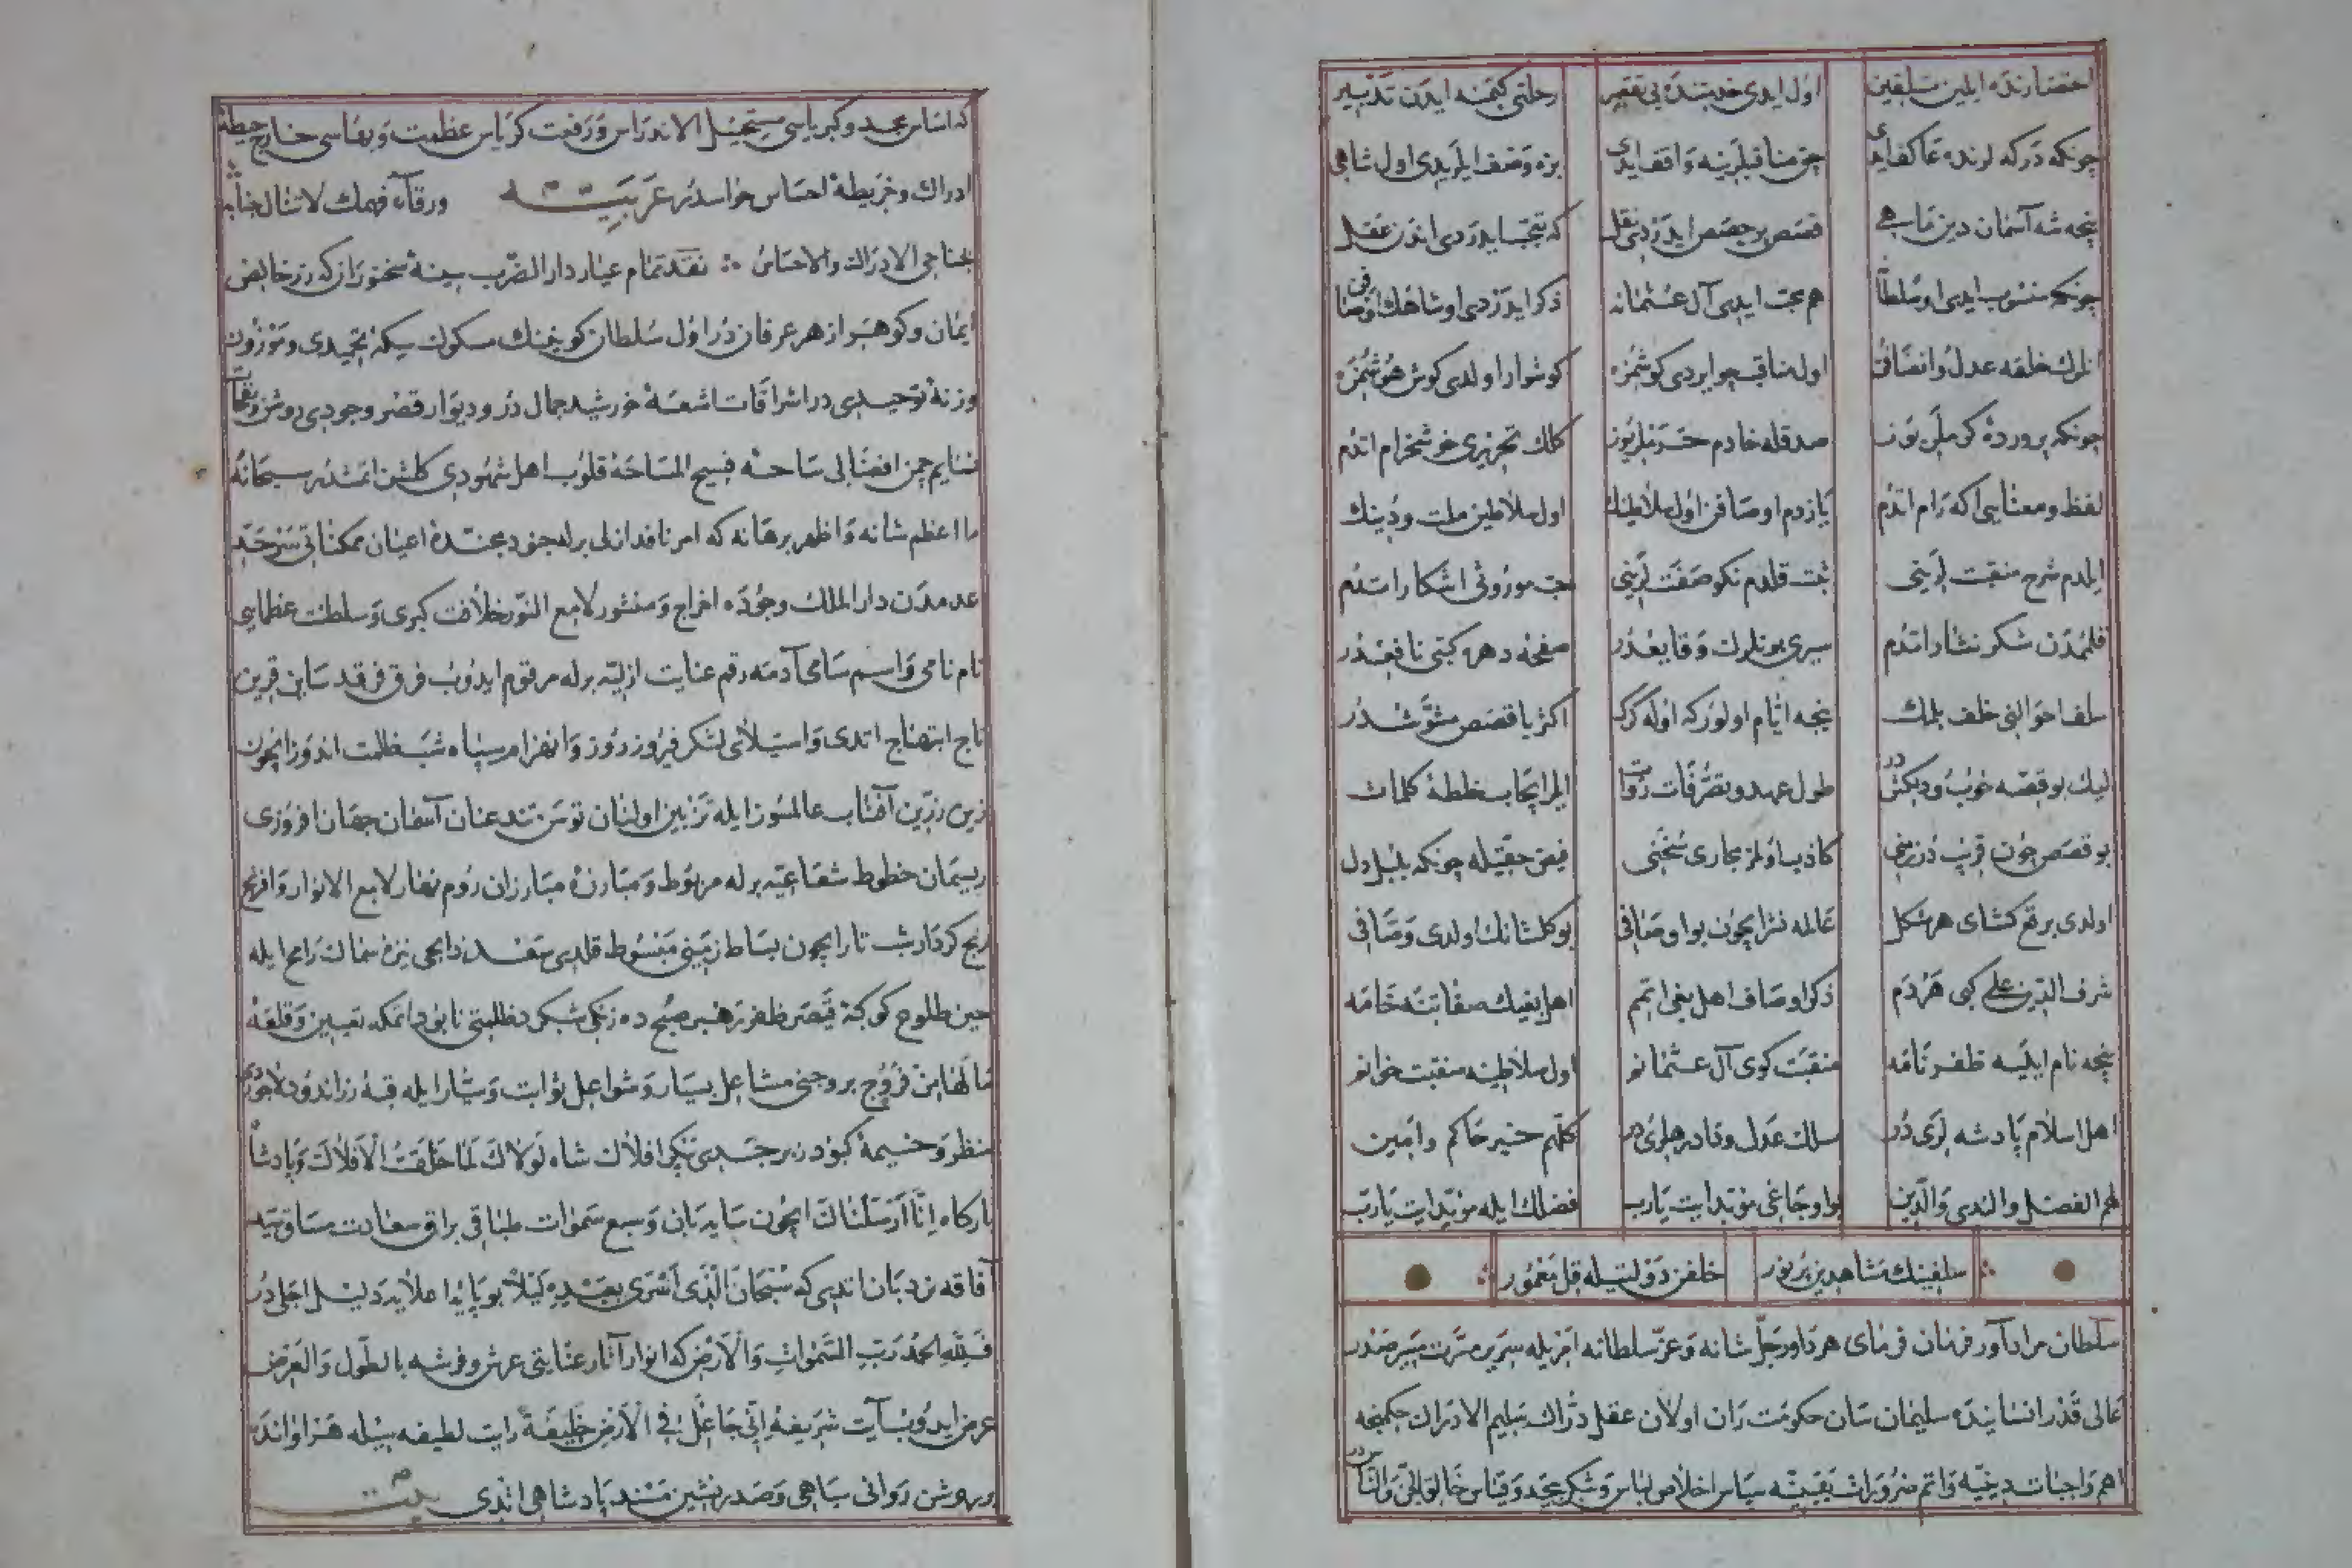 احتضارنده ایلمین تلقین اول ایدی خدمتنده بی تقصیر رحلتی کتمنه ایدن تدبیر
چونکه درکه لرنده عاکف ایدی جو مناقبلرینه واقف ایدی بزه وصف ایلریدی اول شاهی
نیجه شه آسمان دین ماهی قصص پر حصص ایدردی نقل که تعجب ایدردی اندن عقل
چونکه منسوب ایدی او سلطانه هم محب ایدی آل عثمانه ذکر ایدردی او شاهك اوصافن
انلرك خلقه عدل و انصافن اول مناقب چو ایردی کوشمزه کوشوار اولدی کوش هوشمزه
چونکه پرورده کرملریوز صدقله خادم حرملریوز کلك تحریری خوش خرام اتدم
لفظ و معنایی اکه رام اتدم یازدم اوصافن اول سلاطینك اول سلاطین ملت و دینك
ایلدم شرح منقبت لرینی ثبت قلدم نکو صفت لرینی حب موروثی اشکار اتدم
قلمدن شکر نثار اتدم سیری بونلرك وقایعدر صفحه دهره کتبی نافعدر
سلف احوالنی خلف بلمك نیجه ایام اولور که اوله کرك اکثریا قصص مشوشدر
لیك بو قصه خوب و دلکشدر طول عهد و تصرفات روات ایلر ایجاب خطه کلمات
بو قصص چون قریب در زمنی کاذب اولمز مجاری سخنی فیض حقیله چونکه بلبل دل
اولدی برقع کشای هر مشکل عالمه نشر ایچون بو اوصافی بو کلستانك اولدی وصافی
شرف الدین علی کبی هردم ذکر اوصاف اهل بغی اتمم اهل بغیك صفاتنه خامه
نیجه نام ایلیه ظفرنامه منقبت کوی آل عثمانم اول سلاطینه منقبت خوانم
اهل اسلام پادشه لری در سلك عدل و داد رهلری در کلهم خیر حاکم وامین
لهم الفضل والندی والدین بو اوجاغی مؤبد ایت یارب فضلك ایله مؤید ایت یارب
سلفینك مشاهدین پر نور خلفن دولتیله قل معمور
سلطان مراد آور فرمان فرمای هر داور جل شانه و عز سلطانه امریله سریر مسرت مسیر صدر
عالی قدر انسانیده سلیمان سان حکومت ران اولان عقل دراك سلیم الادراك حکمنجه
اهم واجبات دینیه و اتم ضروریات یقینیه سپاس اخلاص لباس و شکر بیحد و قیاس خالق الجن والناس در
که اساس مجد و کبریاسی مستحیل الاندراس و رفعت کریاس عظمت و بقاسی خارج حیطه
ادراك و خریطه احساس حواسدر عربیه ورقاء فهمك لا تنال جنابه
بجناحی الادراك والاحساس نقد تمام عیار دار الضرب سینه سخنوران که زر خالص
ایمان و کوهر ازهر عرفان در اول سلطان کوینینك مسکوك سکه تحمیدی و موزون
وزنه توحیدی در اشراقات اشعه خورشید جمال در و دیوار قصر وجودی روشن و نفحات
نسایم چمن افضالی ساحه فسیح المساحه قلوب اهل شهودی کلشن اتمشدر سبحانه
ما اعظم شانه و اظهر برهانه که امر نافذ ازلی برله جنود مجنده اعیان ممکناتی سرحد
عدمدن دار الملك وجوده اخراج و منشور لامع النور خلافت کبری و سلطنت عظمایی
نام نامی و اسم سامی آدمنه رقم عنایت ازلیه برله مرقوم ایدوب فرق فرقد ساین قرین
تاج ابتهاج اتدی و استیلای لشکر فیروز روز و انهزام سپاه شب ظلمت اندوز ایچون
زین زرین آفتاب عالمسوز ایله تزیین اولنان توسن تند عنان آسمان جهان افروزی
ریسمان خطوط شعاعیه برله مربوط و مبارزه مبارزان روم نهار لامع الانوار و افرنج
رنج کردار شب تار ایچون بساط زمینی مبسوط قلدی سعد ذابحی نیزه سماك رامح ایله
حین طلوع کوکبه قیصر ظفر رهبر صبح ده زنکی شبکرد ظلمتی نابود اتمکه تعیین و قلعه
مالها من فروج بروجنی مشاعل بسیار و شواعل ثوابت و سیار ایله قبه زراندود لاجورد
منظر و خیمه کبود زبرجدی پیکر افلاك شاه لولاك لما خلقت الافلاك و پادشاه
بارکاه انا ارسلناك ایچون سایه بان و سبع سموات طباقی براق سعادت مساق سید
آفاقه نردبان اتدی که سبحان الذی اسری بعبده لیلا بو پایه اعلایه دلیل اجلی در
فلله الحمد رب السموات والارض که انوار آثار عنایتی عرش و فرشه بالطول والعرض
عرض ایدوب آیت شریفه انی جاعل فی الارض خلیفة رایت لطیفه سیله هر اواندە
وروشن روانی سپاهی و صدر نشین مسند پادشاهی اتدی بیت